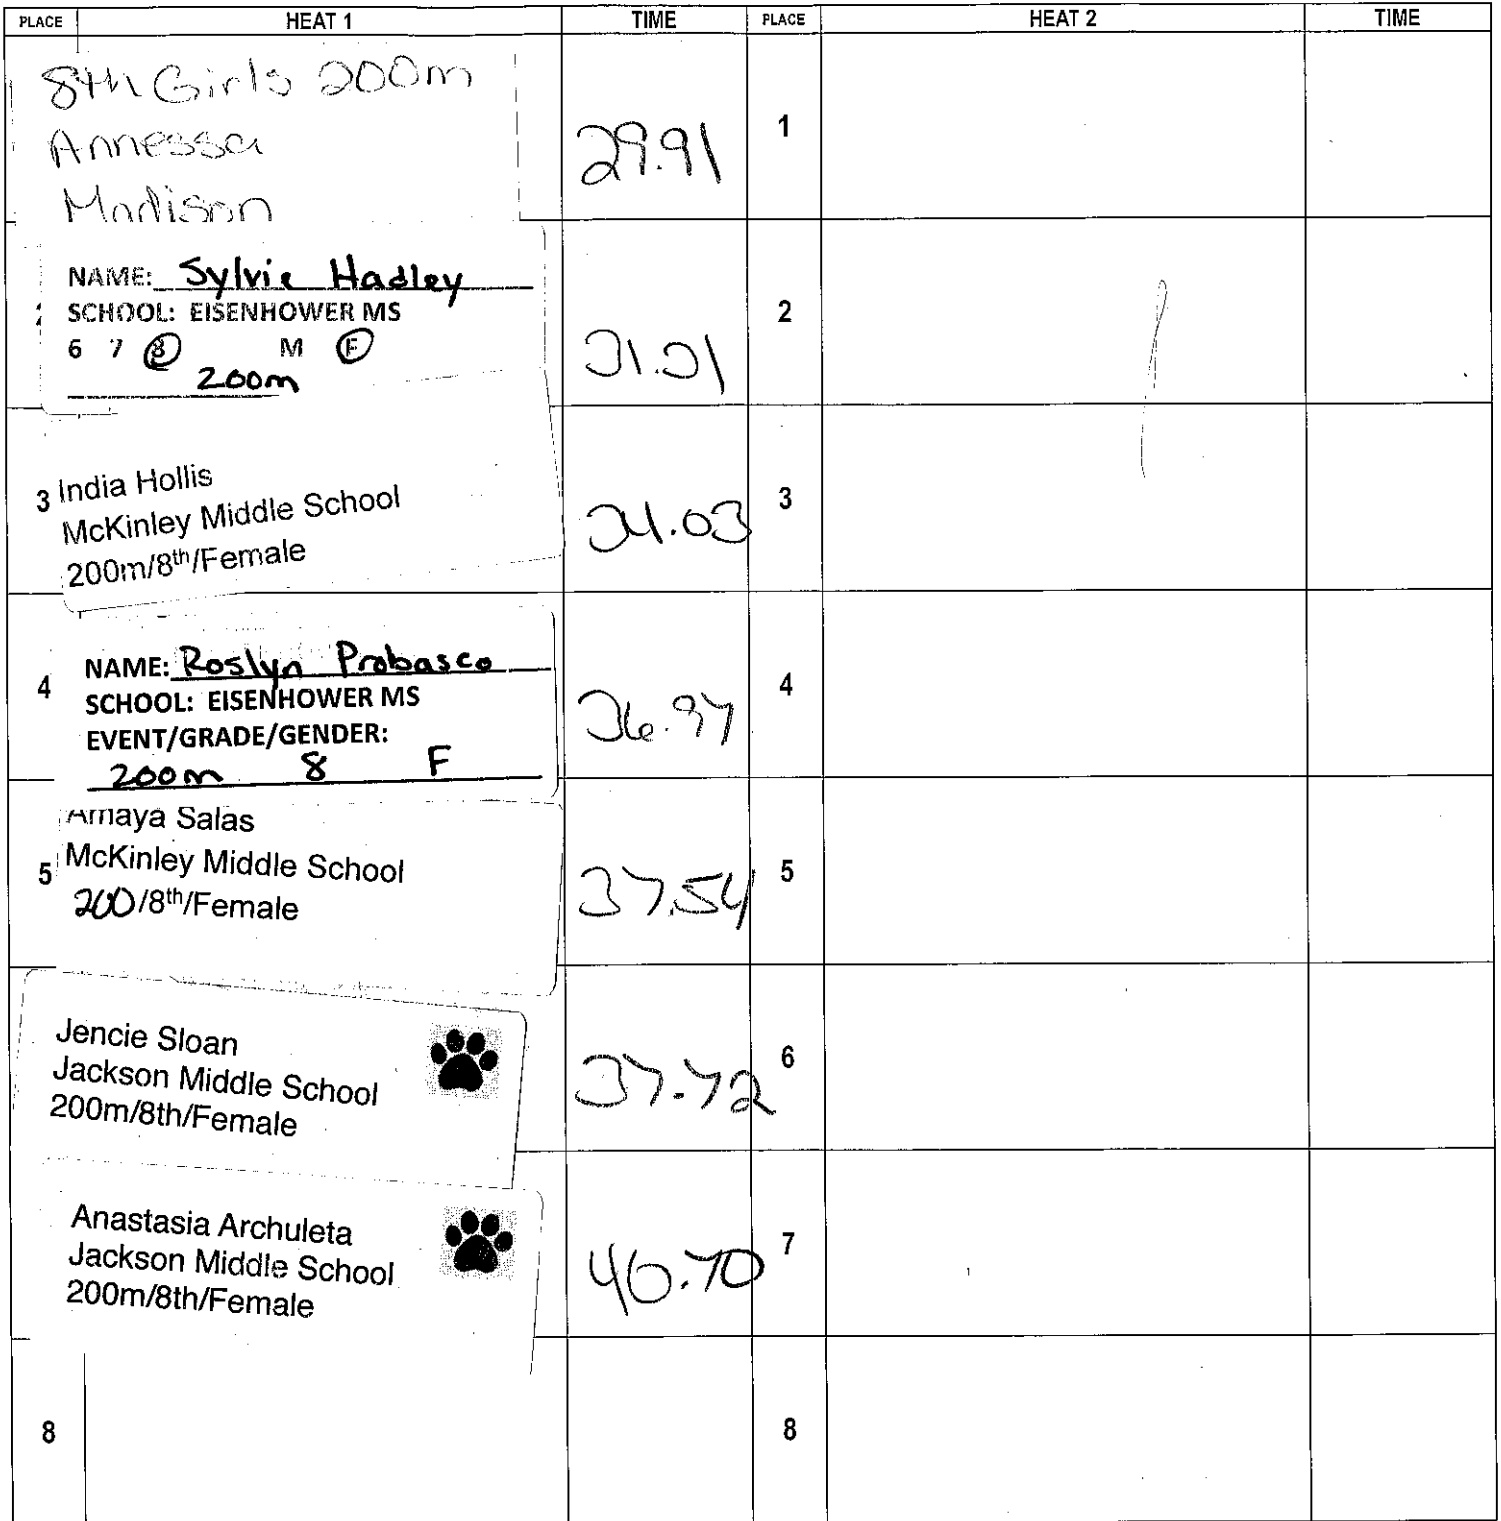 PLACE HEAT 1 TIME PLACE HEAT 2 TIME
8th Girls 200m
Annessa
Madison
29.91
1
NAME: Sylvie Hadley
SCHOOL: EISENHOWER MS
6 7 8 M F
200m
31.31
2
3 India Hollis
McKinley Middle School
200m/8th/Female
34.03
3
4
NAME: Roslyn Probasco
SCHOOL: EISENHOWER MS
EVENT/GRADE/GENDER:
200m 8 F
36.97
4
Amaya Salas
5 McKinley Middle School
200/8th/Female
37.54
5
Jencie Sloan
Jackson Middle School
200m/8th/Female
37.72
6
Anastasia Archuleta
Jackson Middle School
200m/8th/Female
40.70
7
8
8